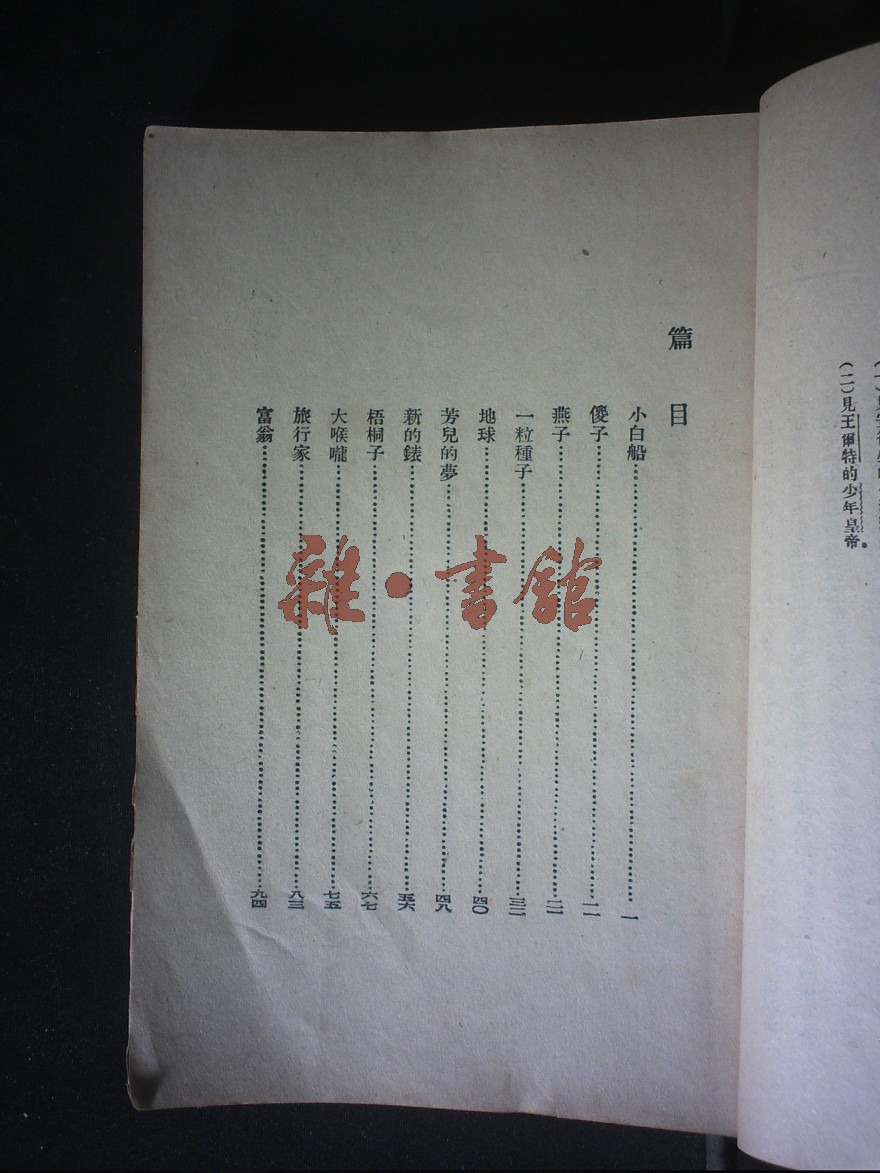 (二)見王爾特的少年皇帝。
篇目
小白船……一
傻子……一一
燕子……二一
一粒種子……三二
地球……四〇
芳兒的夢……四八
新的錶……五六
梧桐子……六七
大喉嚨……七五
旅行家……八三
富翁……九四
雜·書館